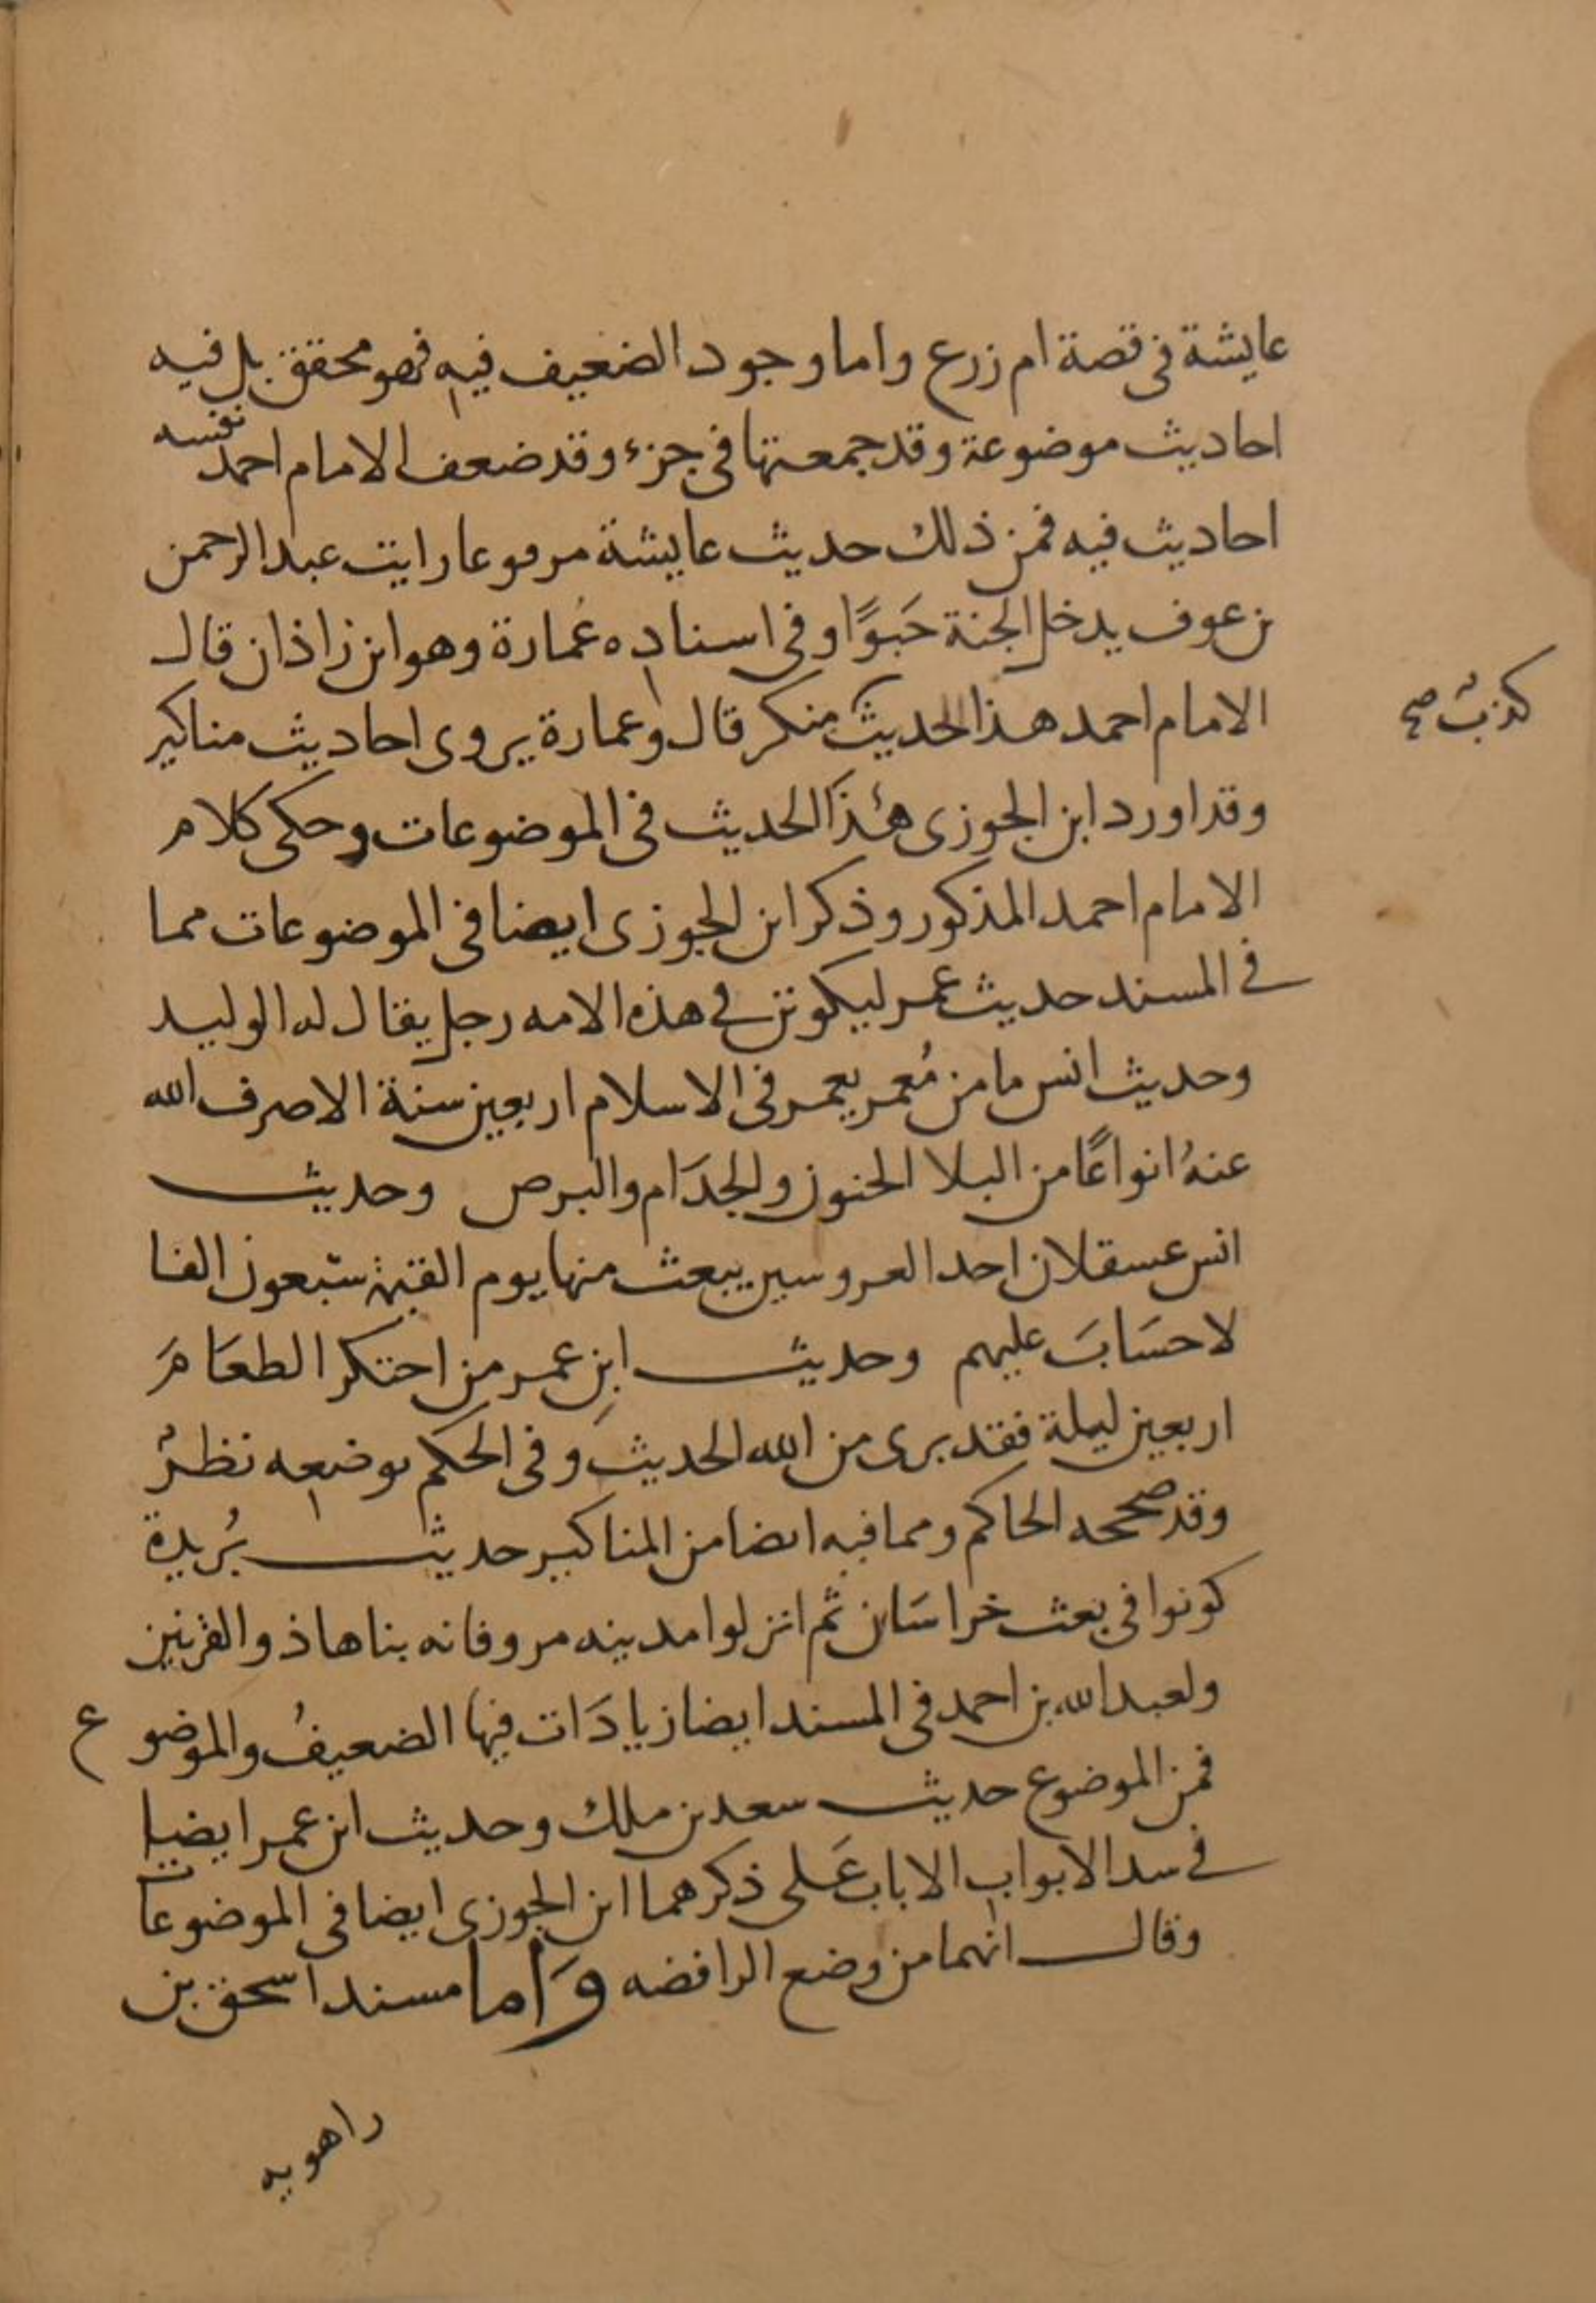 عايشة في قصة ام زرع واما وجود الضعيف فيه فهو محقق بل فيه
احاديث موضوعة وقد جمعتها في جزء وقد ضعف الامام احمد نفسه
احاديث فيه فمن ذلك حديث عايشة مرفوعا رايت عبد الرحمن
بن عوف يدخل الجنة حَبوًا وفي اسناده عُمارة وهو ابن زاذان قال
الامام احمد هذا الحديث منكر قال وعمارة يروى احاديث مناكير
كذبٌ صح
وقد اورد ابن الجوزى هذا الحديث في الموضوعات وحكى كلام
الامام احمد المذكور وذكر ابن الجوزى ايضا في الموضوعات مما
في المسند حديث عمر ليكونن في هذه الامه رجل يقال له الوليد
وحديث انس ما من مُعمر يعمر في الاسلام اربعين سنة الا صرف الله
عنهُ انواعًا من البلا الجنون والجدَام والبرص وحديث
انس عسقلان احد العروسين يبعث منها يوم القيمة سَبعون الفا
لا حسَابَ عليهم وحديث ابنِ عمر من احتكر الطعَامَ
اربعين ليلة فقد برى من الله الحديث وفي الحكم بوضعِه نظرٌ
وقد صححه الحاكم ومما فيه ايضا من المناكير حديث بُريدة
كونوا في بعث خراسَان ثم انزلوا مدينه مرو فانه بناها ذو القرنين
ولعبد الله بن احمد في المسند ايضا زيادَات فيها الضعيفُ والموضوع
فمن الموضوع حديث سعد بن ملك وحديث ابن عمر ايضا
في سد الابواب الا باب عَلى ذكرهما ابن الجوزى ايضا في الموضوعات
وقال انهما من وضع الرافضه وَاما مسند اسحق بن
راهويه